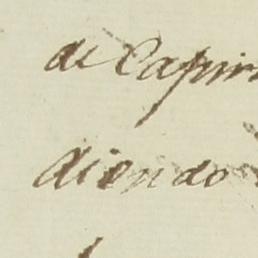 de Capir
diendo